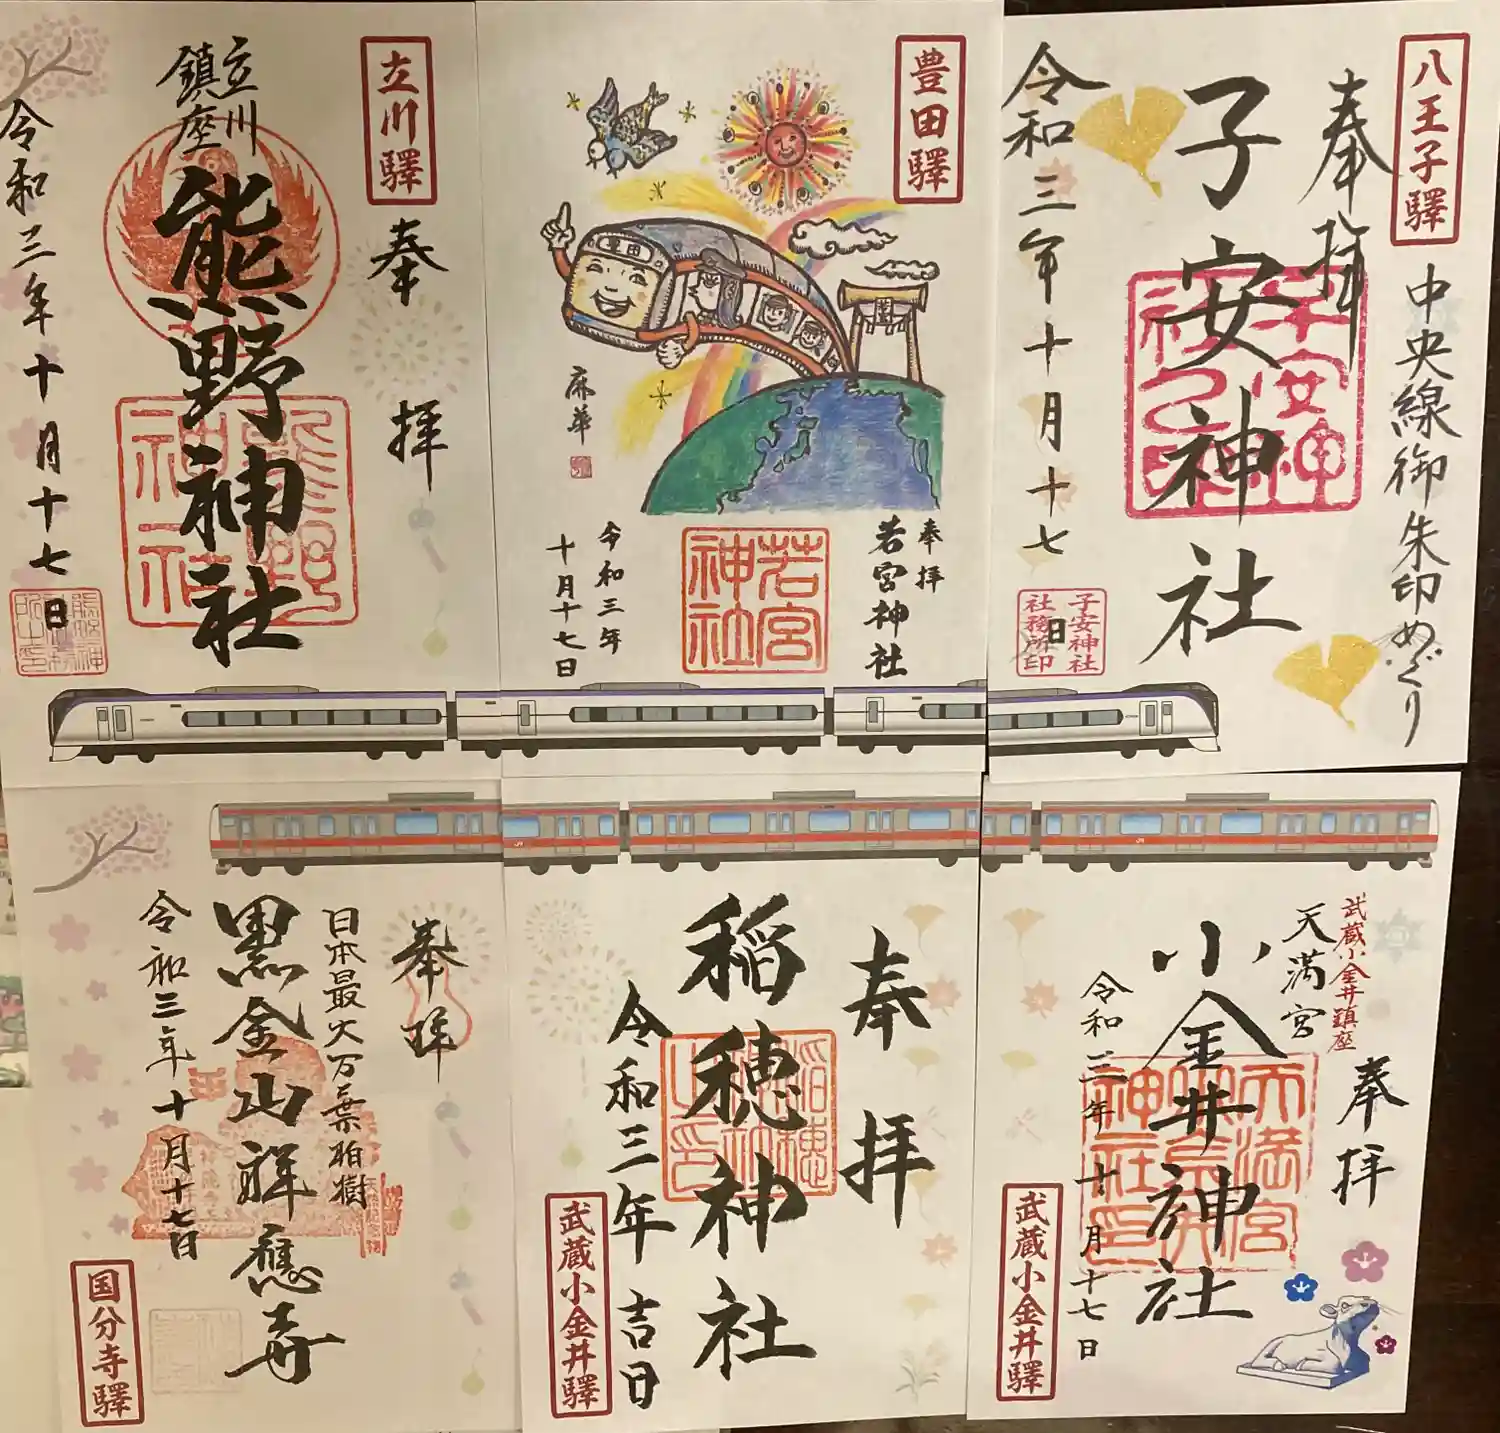 八王子驛
中央線御朱印めぐり
奉拝
子安神社
子安神社
社務所印
令和三年十月十七日
豊田驛
豊田
麻華
奉拝
若宮神社
若宮
神社
令和三年
十月十七日
立川驛
奉拝
立川
鎮座
熊野神社
令和三年十月十七日
武蔵小金井鎮座
天満宮
奉拝
小金井神社
天満宮
令和三年十月十七日
武蔵小金井驛
JR
奉拝
稲穂神社
令和三年吉日
武蔵小金井驛
JR
奉拝
日本最大万葉柏樹
黒金山祥應寺
令和三年十月十七日
国分寺驛